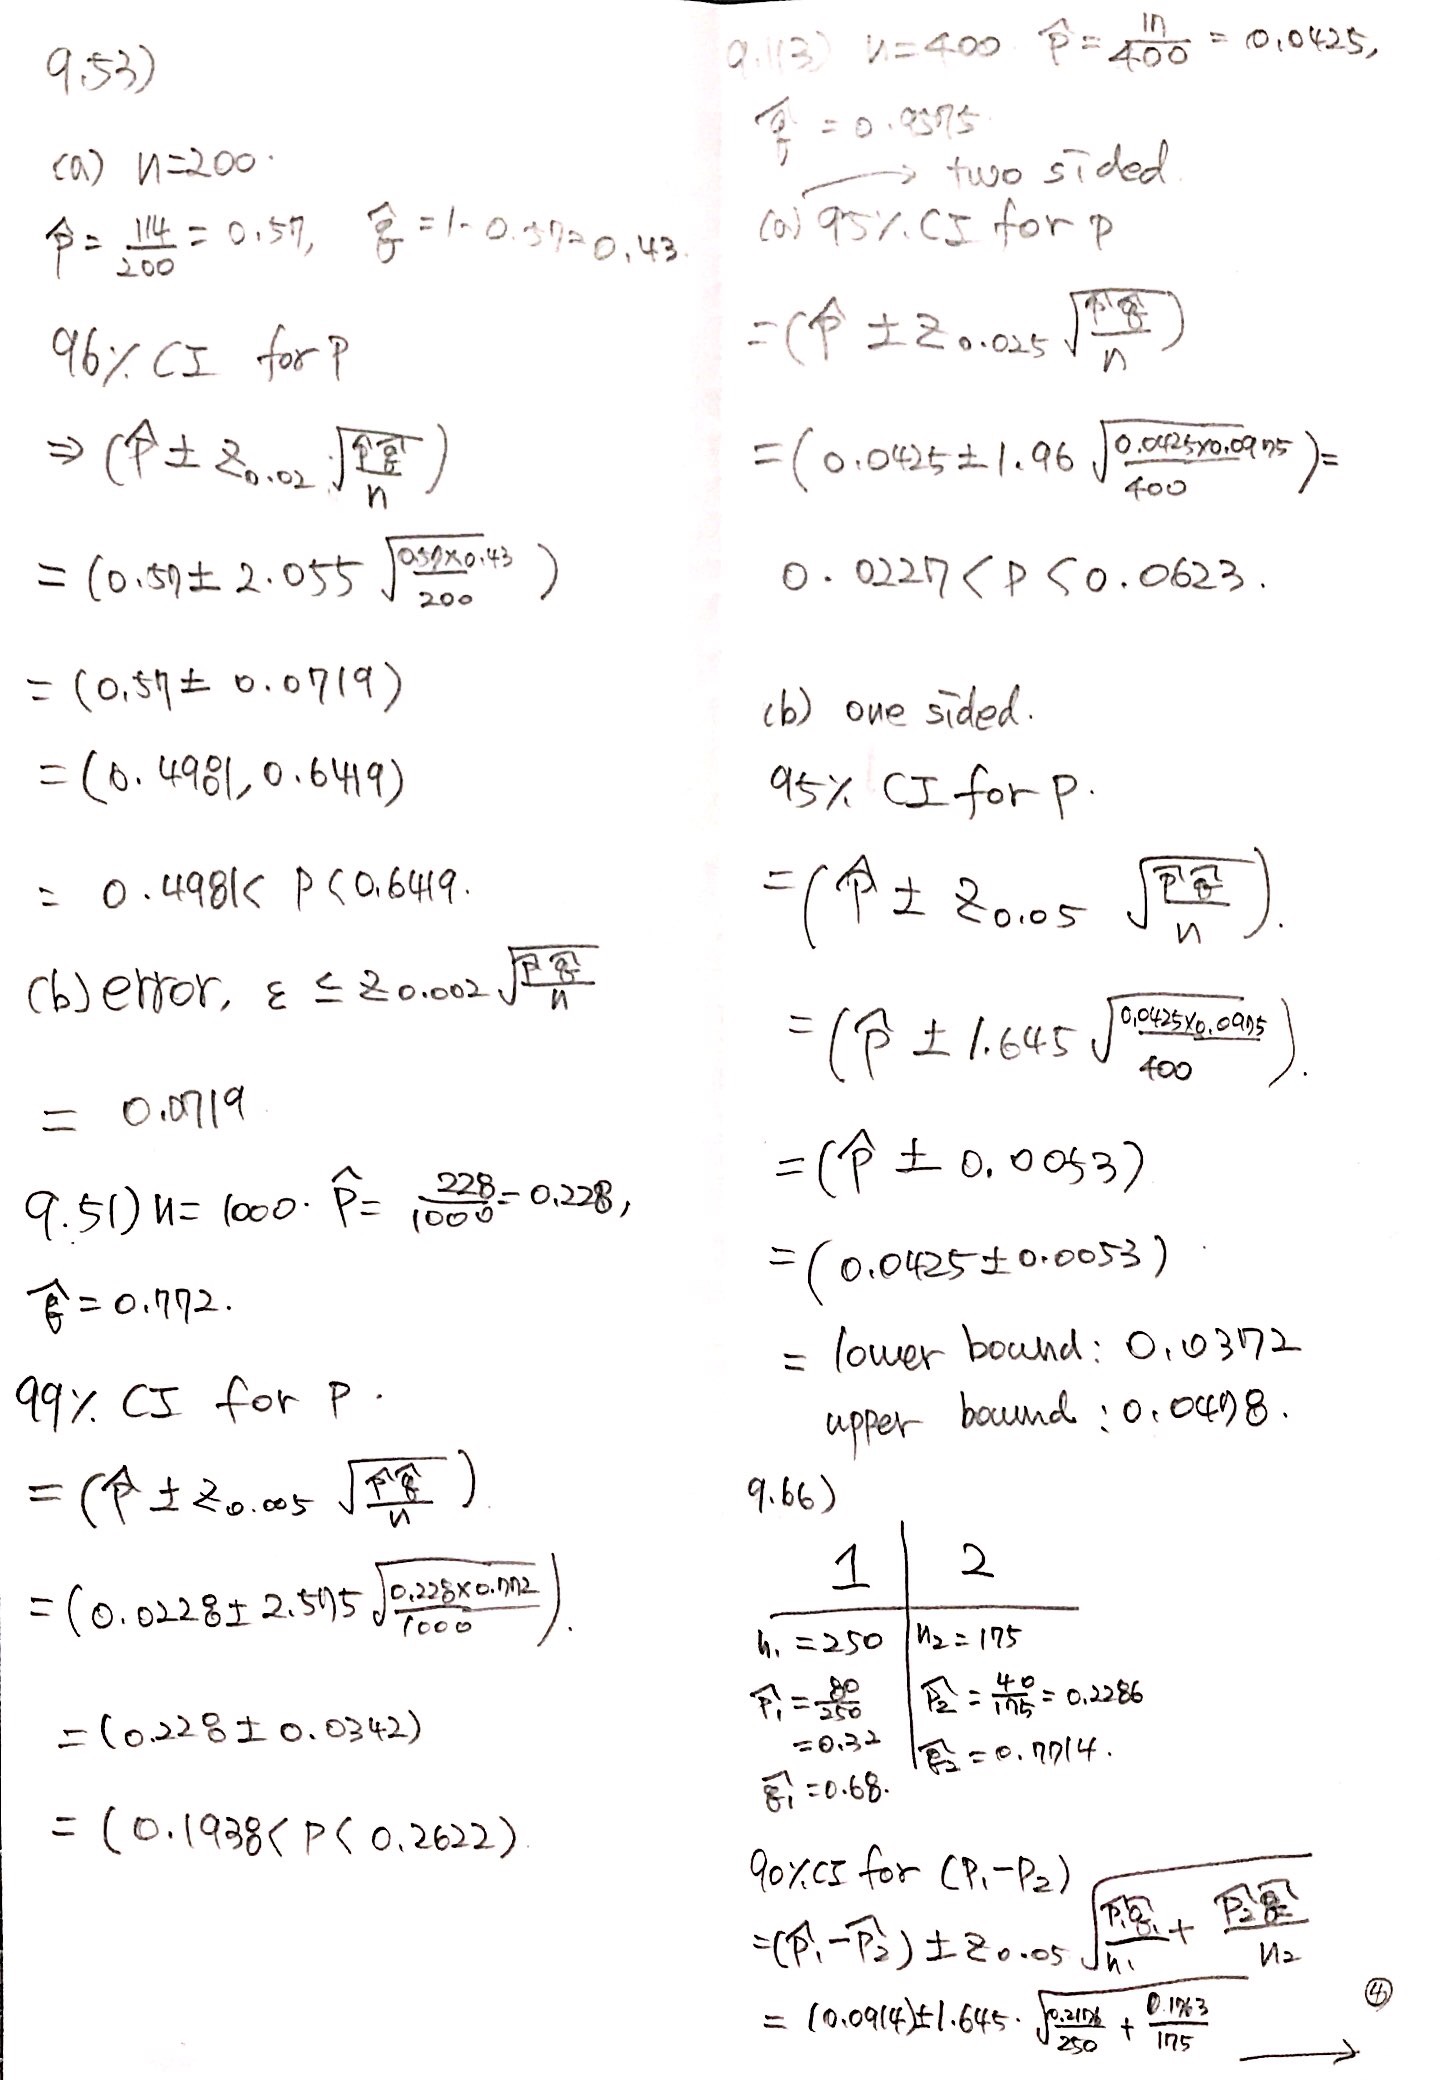 9.53)
(a) n=200.
p̂ = 114/200 = 0.57, q̂ = 1-0.57=0.43.
96% CI for P
⇒ (p̂ ± z0.02 √(p̂q̂/n))
= (0.57 ± 2.055 √(0.57×0.43/200))
= (0.57 ± 0.0719)
= (0.4981, 0.6419)
= 0.4981< P <0.6419.
(b) error, ε ≤ z0.002 √(p̂q̂/n)
= 0.0719
9.51) n= 1000. p̂= 228/1000 = 0.228,
q̂ = 0.772.
99% CI for P.
= (p̂ ± z0.005 √(p̂q̂/n))
= (0.0228 ± 2.575 √(0.228×0.772/1000)).
= (0.228 ± 0.0342)
= (0.1938< P < 0.2622)
9.113) n=400 p̂ = 17/400 = 0.0425,
q̂ = 0.9575
→ two sided.
(a) 95% CI for p
= (p̂ ± z0.025 √(p̂q̂/n))
= (0.0425 ± 1.96 √(0.0425×0.0975/400)) =
0.0227 < P < 0.0623.
(b) one sided.
95% CI for P.
= (p̂ ± z0.05 √(p̂q̂/n)).
= (p̂ ± 1.645 √(0.0425×0.0975/400)).
= (p̂ ± 0.0053)
= (0.0425 ± 0.0053)
= lower bound: 0.0372
upper bound: 0.0478.
9.66)
1 2
n1 = 250 n2 = 175
p̂1 = 80/250 p̂2 = 40/175 = 0.2286
= 0.32 q̂2 = 0.7714.
q̂1 = 0.68.
90% CI for (P1-P2)
= (p̂1-p̂2) ± z0.05 √(p̂1q̂1/n1 + p̂2q̂2/n2)
= (0.0914) ± 1.645. √(0.2176/250 + 0.1763/175) →
④